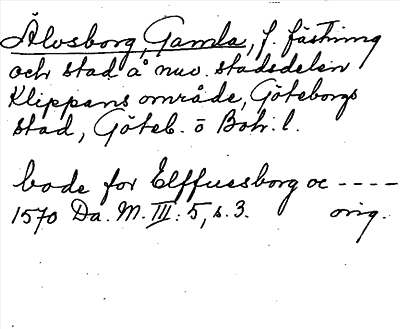 Älvsborg, Gamla, f. fästning
och stad å nuv. stadsdelen
Klippans område, Göteborgs
stad, Göteb. o Boh. l.
bode for Elffuesborg oc ----
1570 Da. M. III: 5, s. 3. orig.